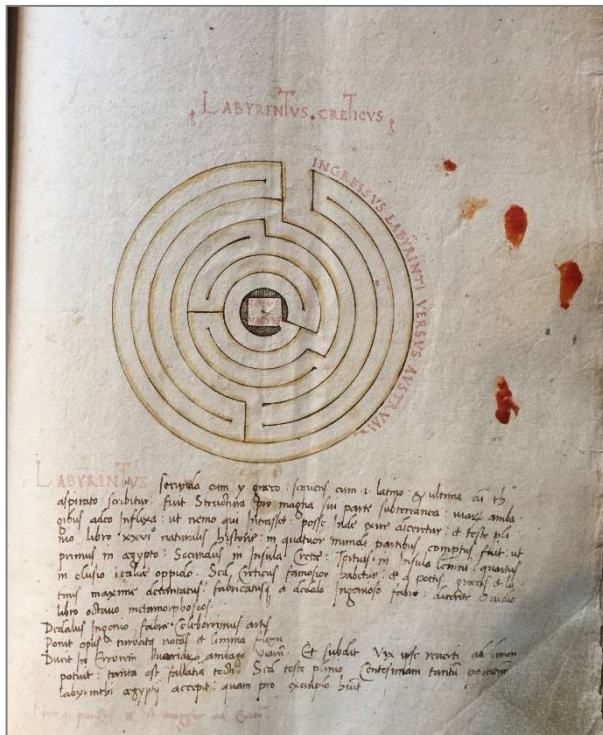 LABYRENTVS. CRETICVS
INGRESSVS LABYRINTI VERSVS AVSTRVM
LABYRINTVS
secundo cum y græco: sequens cum i latino: & ultima cū th
aspirato scribitur. fuit structura pro magna sui parte subterranea: uiarū amba
gibus adeo Influxa: ut nemo qui intrasset: posse Inde exire diceretur. et teste pli
nio libro xxxvi naturalis historie: in quatuor mundi partibus fuit: ut
primus in ægypto: Secundus in Insula Crete: Tertius in Insula lemni: quartus
in italiæ oppido. Sed Creticus famosior habetur: et a poetis græcis et la
tinis maxime fabricatus a dedalo Ingenioso fabro: dicente Ouidio
libro octauo metamorphoseos.
Dedalus Ingenio fabræ Celeberrimus artis
Ponit opus: turbatq notas et limina flexu
Ducit In Errorem Variarū ambage Viarū. Et subdit Vix ipse reuerti ad limen
potuit: tanta est fallatia tecti. Sed teste plinio Centesimam tantū portionem
labyrinthi ægypti accepit: quam pro exemplo